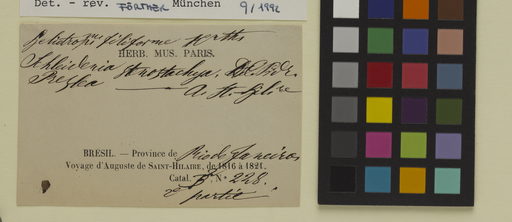 Det. - rev. FÖRTHER München 9/1992
Heliotropium filiforme
HERB. MUS. PARIS.
Schleidenia stenostachya, DC.
BRESIL. — Province de Rio de Janeiro
Voyage d'Auguste de SAINT-HILAIRE, de 1816 à 1821.
Catal. N° 228.
2e partie